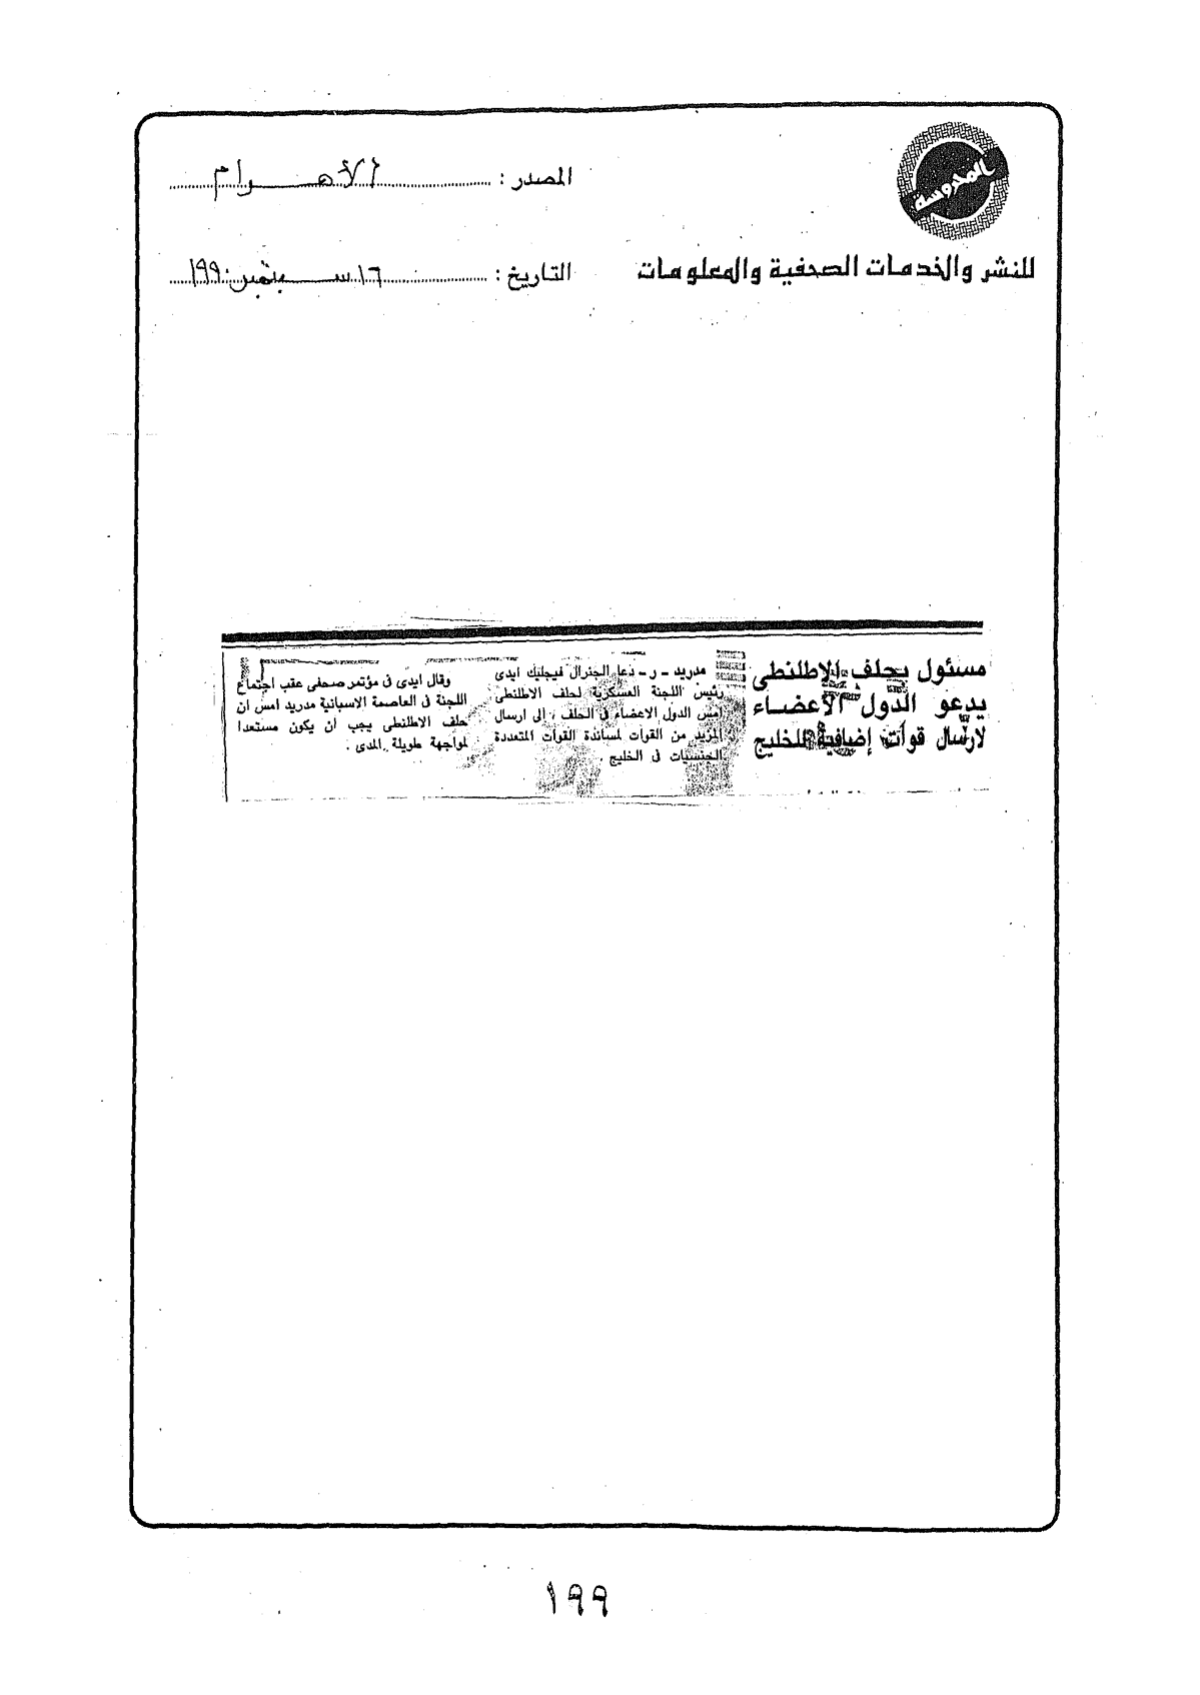 المحروسة
للنشر والخدمات الصحفية والمعلومات
المصدر : الأهرام
التاريخ : ١٦ سبتمبر ١٩٩٠
مسئول بحلف الاطلنطى
يدعو الدول الأعضاء
لارسال قوات إضافية للخليج
مدريد - ر - دعا الجنرال فيجليك ايدى
رئيس اللجنة العسكرية لحلف الاطلنطى
امس الدول الاعضاء فى الحلف ، إلى ارسال
المزيد من القوات لمساندة القوات المتعددة
الجنسيات فى الخليج .
وقال ايدى فى مؤتمر صحفى عقب اجتماع
اللجنة فى العاصمة الاسبانية مدريد امس ان
حلف الاطلنطى يجب ان يكون مستعدا
لمواجهة طويلة المدى .
١٩٩